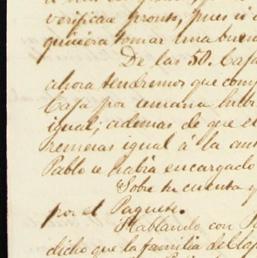 verificar pronto, pues si
quisiera tomar una buen
De las 50. Caja
ahora tendremos que com
Caja por semana hubi
igual; ademas de que el
remesas igual á la an
Pablo le habia encargado
Sobre tu cuenta y
por el Paquete.
Hablando con P
dicho que la familia de